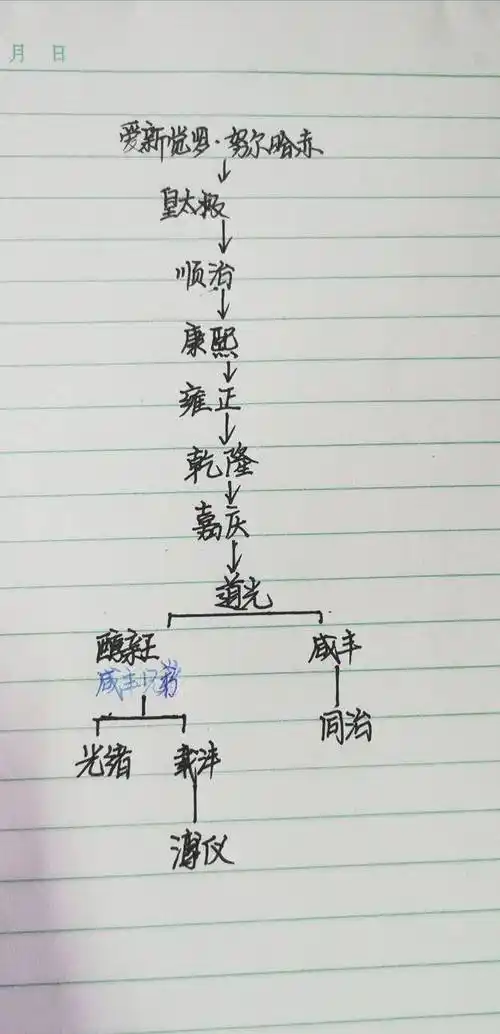 月 日
爱新觉罗·努尔哈赤
皇太极
顺治
康熙
雍正
乾隆
嘉庆
道光
醇亲王 咸丰
咸丰兄弟
同治
光绪 载沣
溥仪